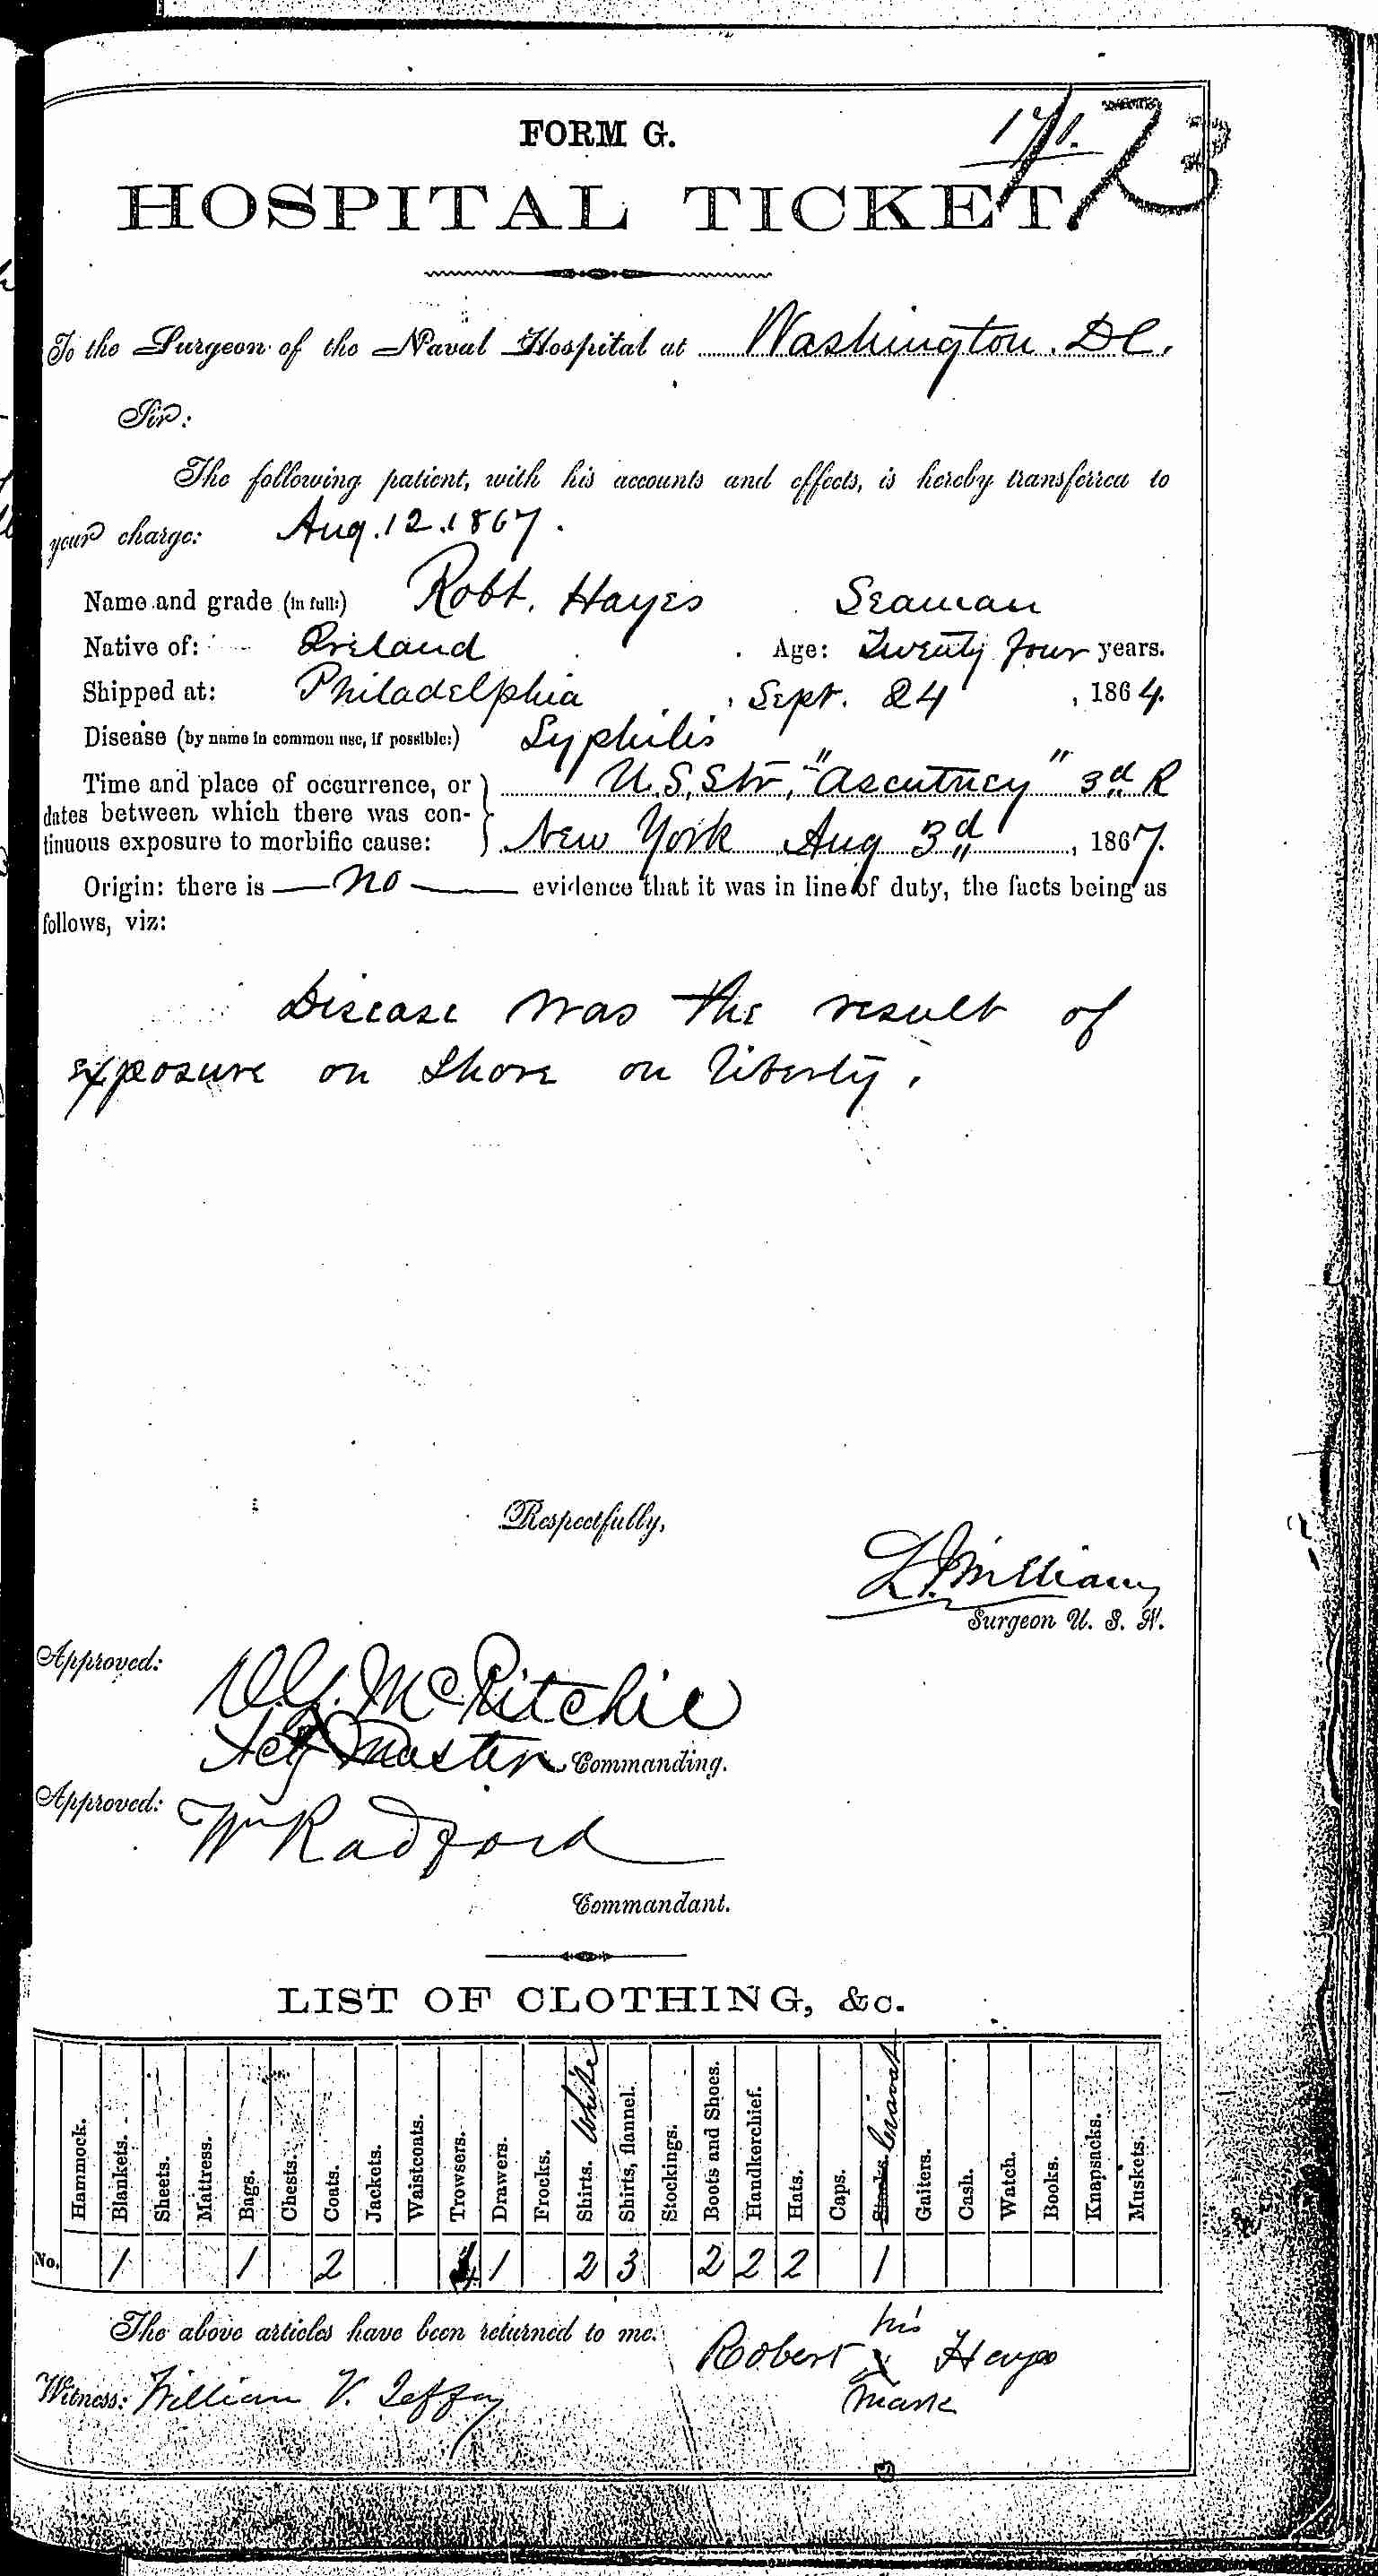 171. 73
FORM G.
HOSPITAL TICKET.
To the Surgeon of the Naval Hospital at Washington. DC.
Sir:
The following patient, with his accounts and effects, is hereby transferred to
your charge: Aug. 12. 1867.
Name and grade (in full:) Robt. Hayes Seaman
Native of: Ireland Age: Twenty four years.
Shipped at: Philadelphia, Sept. 24, 1864.
Disease (by name in common use, if possible:) Syphilis
Time and place of occurrence, or U.S. Str. "Ascutney" 3d R
dates between which there was con-
tinuous exposure to morbific cause: New York Aug 3d, 1867.
Origin: there is — no — evidence that it was in line of duty, the facts being as
follows, viz:
Disease was the result of
exposure on shore on liberty.
Respectfully,
Williams
Surgeon U. S. N.
Approved:
W.G. McRitchie
Actg Master Commanding.
Approved:
Wm Radford
Commandant.
LIST OF CLOTHING, &c.
Hammock. Blankets. Sheets. Mattress. Bags. Chests. Coats. Jackets. Waistcoats. Trowsers. Drawers. Frocks. Shirts. White Shirts, flannel. Stockings. Boots and Shoes. Handkerchief. Hats. Caps. Stocks. Cravat Gaiters. Cash. Watch. Books. Knapsacks. Muskets.
No. 1 1 2 4 1 2 3 2 2 2 1
The above articles have been returned to me.
his
Robert x Hayes
mark
Witness: William V.